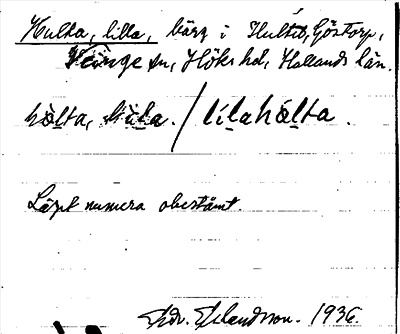 Hulta, lilla, bärg i Hultet, Göstorp,
Veinge sn, Höks hd, Hallands län.
hòlta, lìla. / lílahòlta.
Läget numera obestämt.
1936.